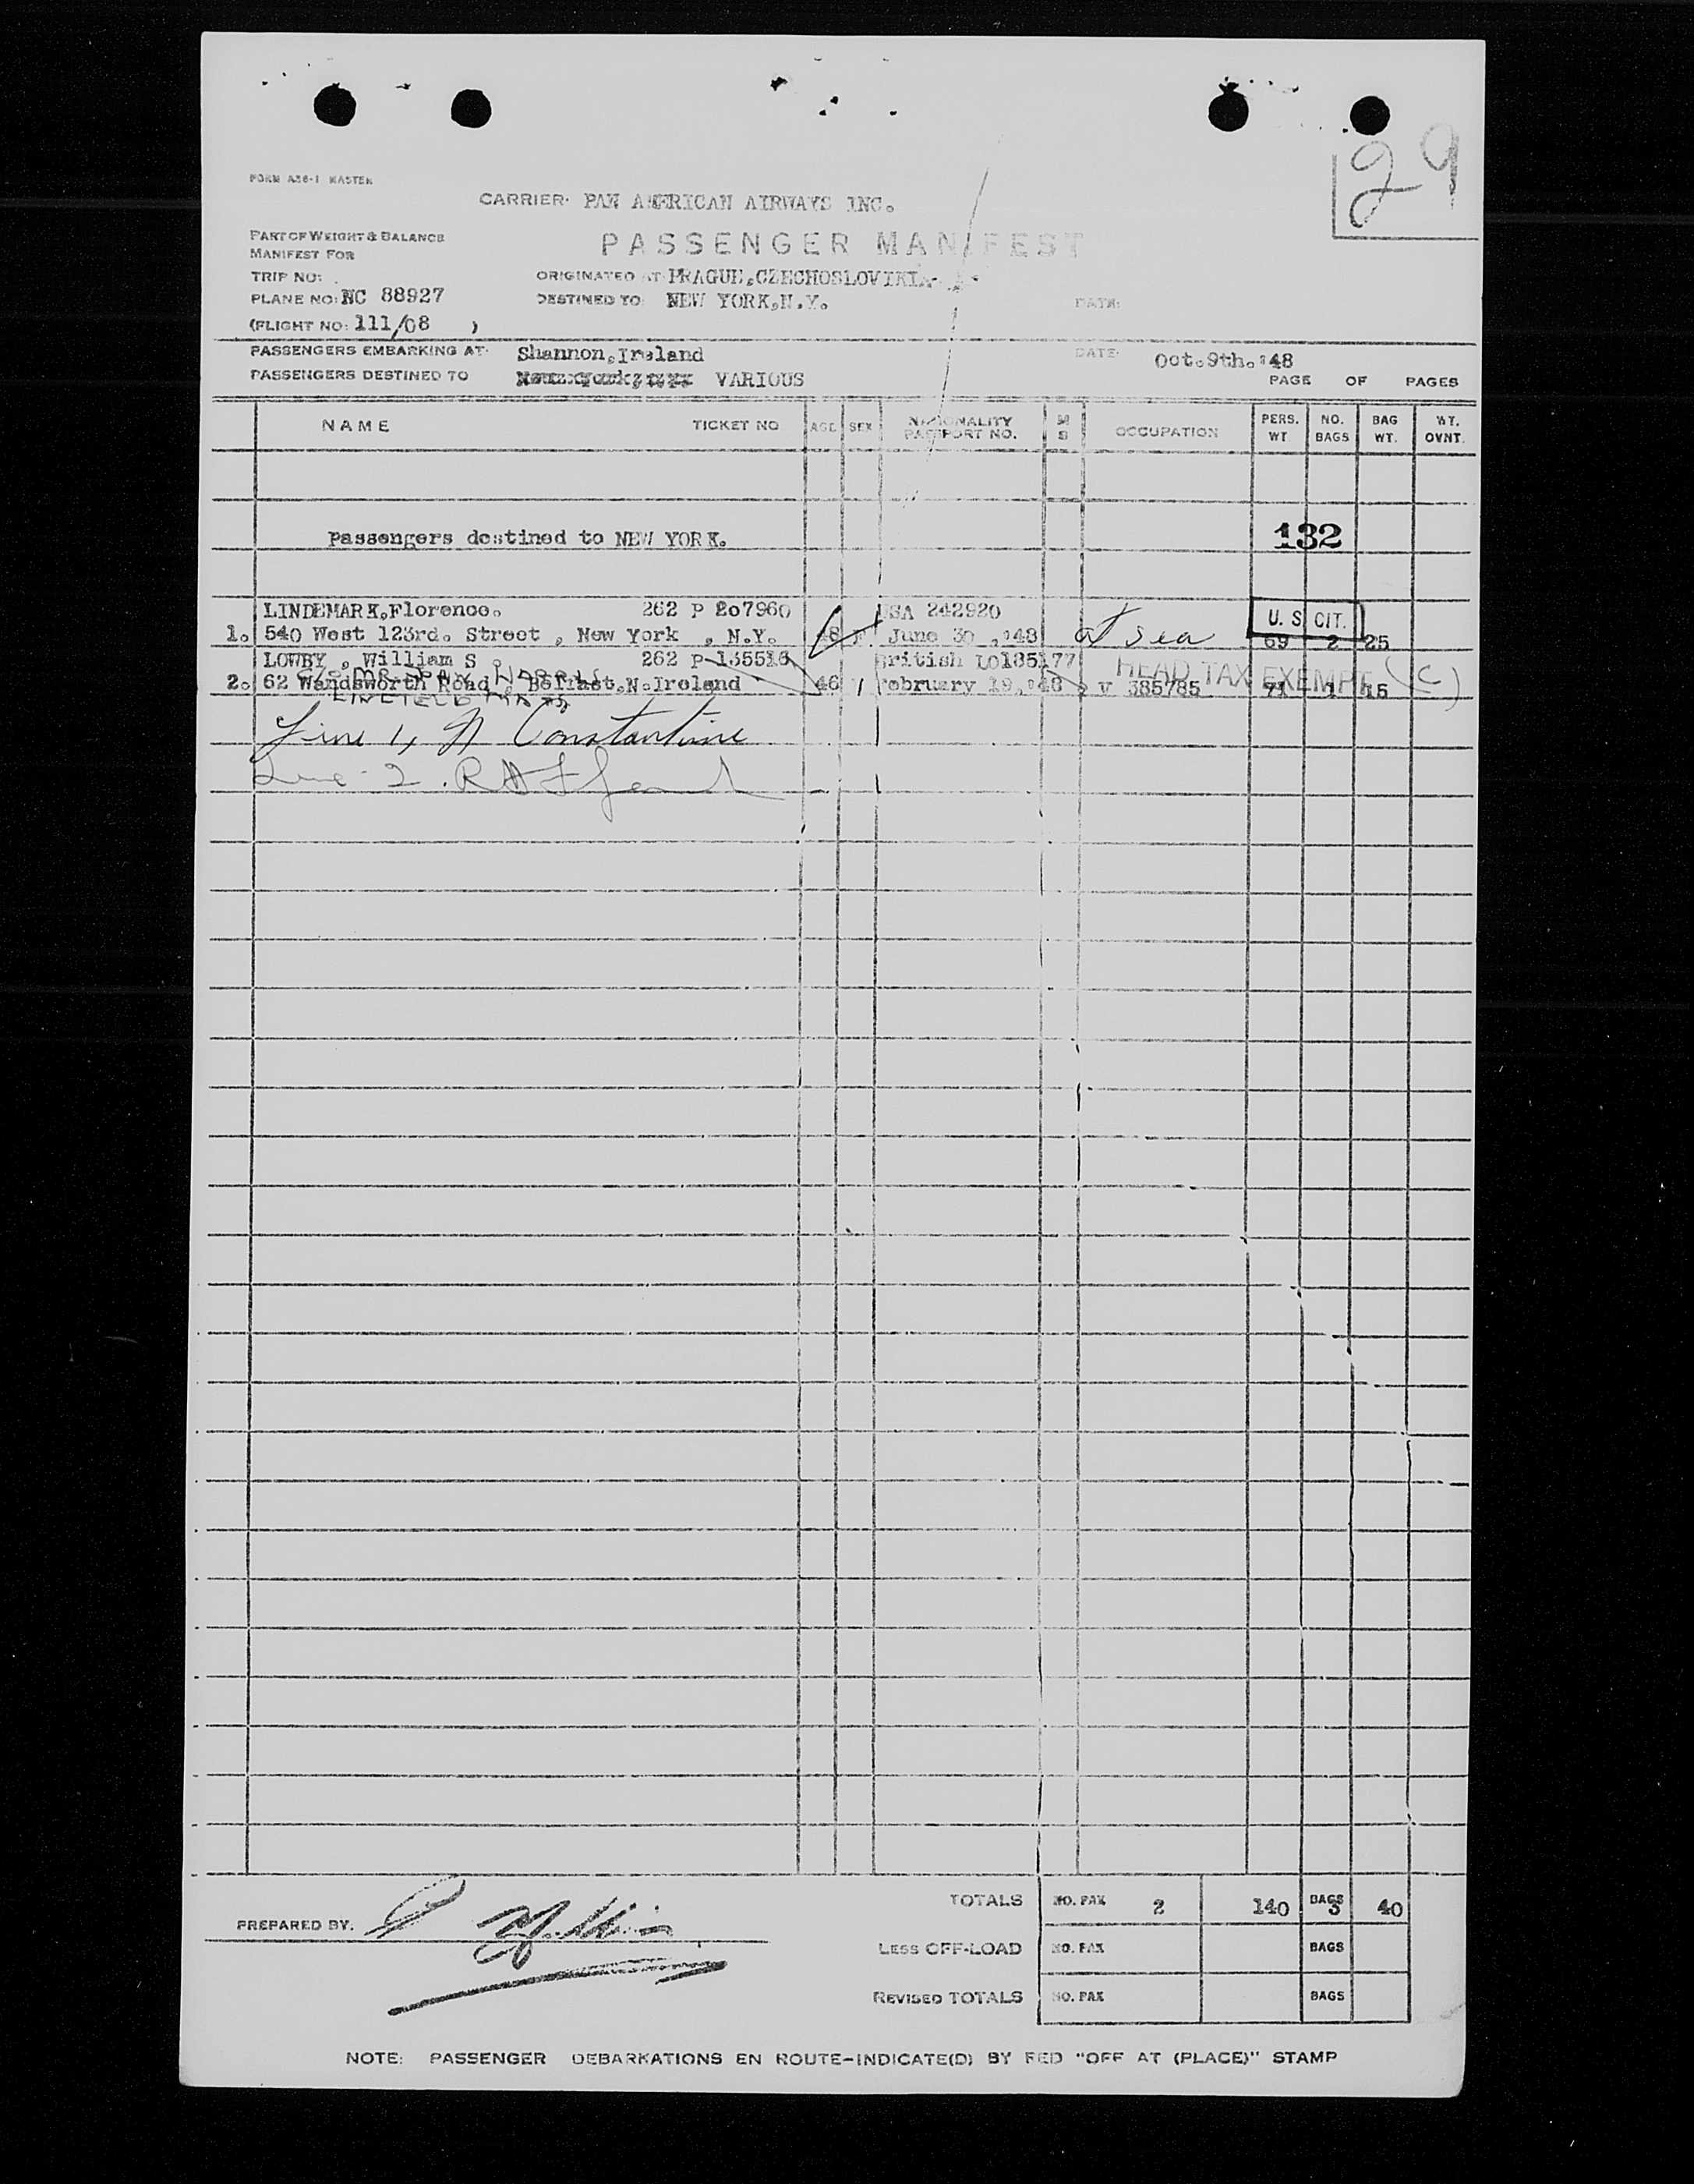 29
FORM A36-1 MASTER
CARRIER: PAN AMERICAN AIRWAYS INC.
PASSENGER MANIFEST
PART OF WEIGHT & BALANCE
MANIFEST FOR
TRIP NO:
ORIGINATED AT: PRAGUE,CZECHOSLOVIKI
PLANE NO: NC 88927
DESTINED TO: NEW YORK,N.Y.
DATE:
(FLIGHT NO: 111/08 )
PASSENGERS EMBARKING AT: Shannon,Ireland
DATE: Oct.9th.'48
PASSENGERS DESTINED TO VARIOUS
PAGE OF PAGES
NAME TICKET NO AGE SEX NATIONALITY PASSPORT NO. M S OCCUPATION PERS. WT. NO. BAGS BAG WT. WT. OVNT.
Passengers destined to NEW YORK.
132
LINDEMARK,Florence. 262 P 207960 USA 242920
U. S. CIT.
1. 540 West 123rd. Street , New York , N.Y. 48 F June 30 ,'48 at sea 69 2 25
LOWBY , William S 262 P 135516 British LO185177
HEAD TAX EXEMPT (C)
2. 62 Wandsworth Road , Belfast.N.Ireland 46 February 19,'48 V 385785 71 1 15
Line 1, N Constantine
Line - 2.
TOTALS NO. PAX 2 140 BAGS 3 40
PREPARED BY:
LESS OFF-LOAD NO. PAX BAGS
REVISED TOTALS NO. PAX BAGS
NOTE: PASSENGER DEBARKATIONS EN ROUTE-INDICATE(D) BY RED "OFF AT (PLACE)" STAMP